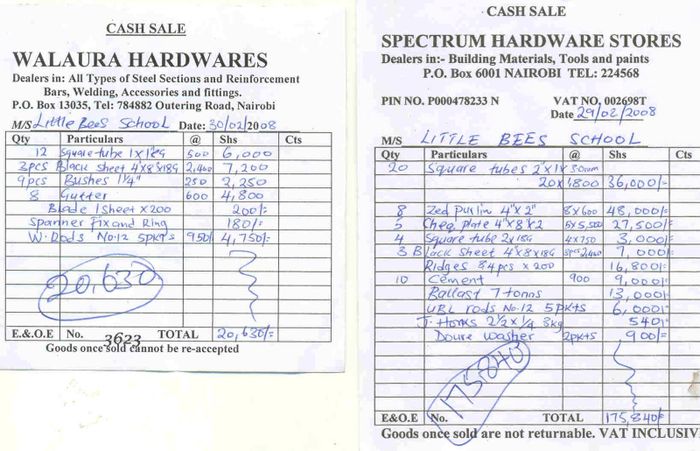 CASH SALE
WALAURA HARDWARES
Dealers in: All Types of Steel Sections and Reinforcement
Bars, Welding, Accessories and fittings.
P.O. Box 13035, Tel: 784882 Outering Road, Nairobi
M/S Little Bees School Date: 30/02/2008
Qty Particulars @ Shs Cts
12 Square tube 1x18G 500 6,000
3pcs Black Sheet 4'x8'x18G 2,400 7,200
9pcs Bushes 1¼" 250 2,250
8 Gutter 600 4,800
Blade 1 Sheet x 200 200/-
Spanner Fix and Ring 180/-
W. Rods No.12 5pkts 950/- 4,750/-
20,630
E.&O.E No. 3623 TOTAL 20,630/=
Goods once sold cannot be re-accepted
CASH SALE
SPECTRUM HARDWARE STORES
Dealers in:- Building Materials, Tools and paints
P.O. Box 6001 NAIROBI TEL: 224568
PIN NO. P000478233 N VAT NO. 002698T
Date 29/02/2008
M/S LITTLE BEES SCHOOL
Qty Particulars @ Shs Cts
20 Square tubes 2"x1x
20x1800 36,000/=
8 Zed Purlin 4"x2" 8x600 48,000/=
5 Cheq plate 4'x8'x2 5x5,500 27,500/=
4 Square tube 2x18G 4x750 3,000/=
3 Black Sheet 4'x8'x18G 3pcs 2,400 7,000/=
Ridges 84pcs x 200 16,800/=
10 Cement 900 9,000/=
Ballast 7 tonns 13,000/=
UBL rods No.12 5pkts 6,000/=
J. Hooks 2½x¼ 3kg 540/-
Doure washer 2pkts 900/=
175,840
E&O.E No. TOTAL 175,840/=
Goods once sold are not returnable. VAT INCLUSIV